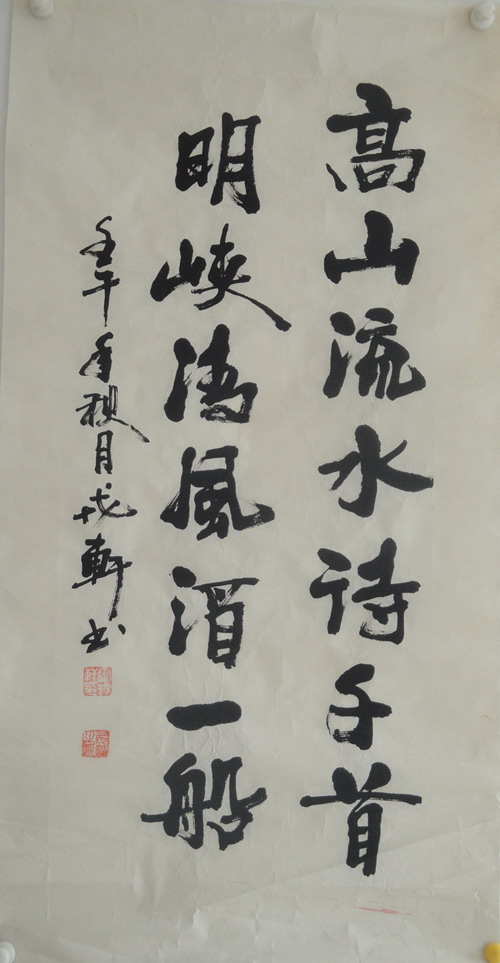 高山流水诗千首
明峡清风酒一船
壬午年秋月成軒书